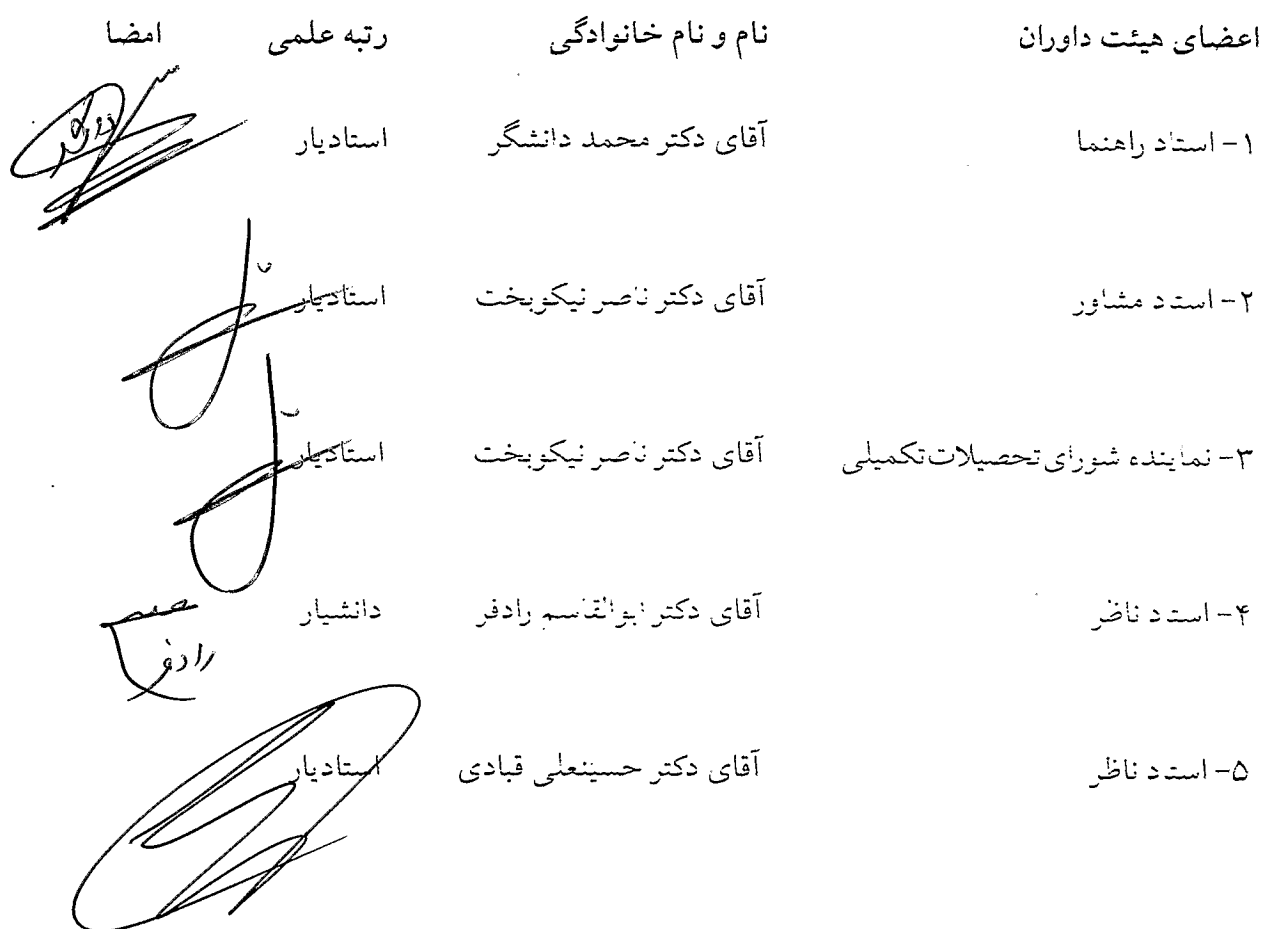 اعضای هیئت داوران نام و نام خانوادگی رتبه علمی امضا
۱- استاد راهنما آقای دکتر محمد دانشگر استادیار
۲- استاد مشاور آقای دکتر ناصر نیکوبخت استادیار
۳- نماینده شورای تحصیلات تکمیلی آقای دکتر ناصر نیکوبخت استادیار
۴- استاد ناظر آقای دکتر ابوالقاسم رادفر دانشیار
رادفر
۵- استاد ناظر آقای دکتر حسینعلی قبادی استادیار